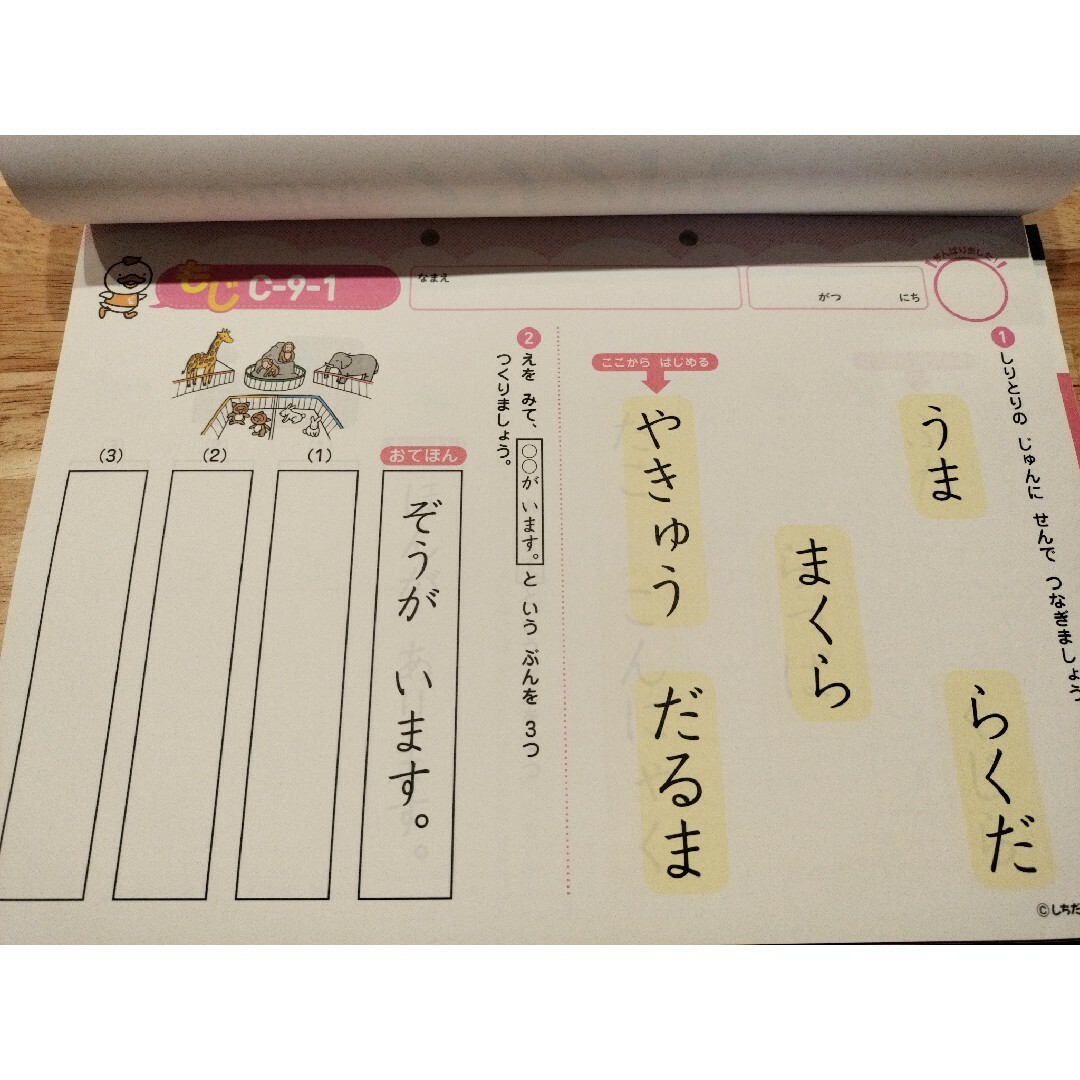 もじ C-9-1
なまえ
がつ にち
がんばりました!
1 しりとりの じゅんに せんで つなぎましょう
ここから はじめる
うま
やきゅう
まくら
らくだ
だるま
2 えを みて、 ○○が います。 と いう ぶんを 3つ
つくりましょう。
おてほん
ぞうが います。
(1)
(2)
(3)
©しちだ